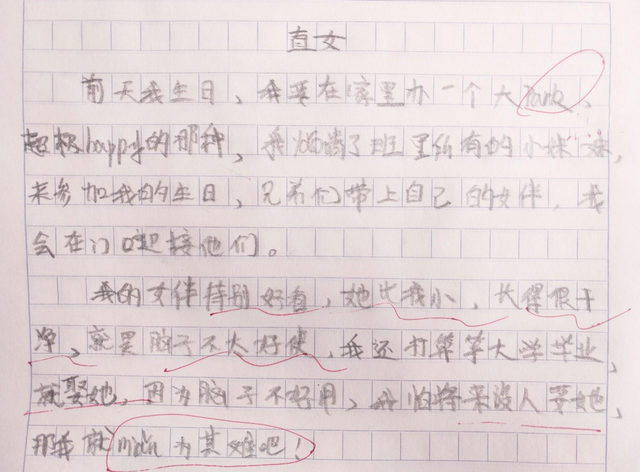 直女
前天我生日，我要在家里办一个大Park，
超极happy的那种，我邀请了班里所有的小妹妹，
来参加我的生日，兄弟们带上自己的女伴，我
会在门口迎接他们。
我的女伴特别好看，她比我小，长得很干
净，就是脑子不太好使，我还打算等大学毕业，
就娶她，因为脑子不好用，我怕将来没人要她，
那我就 为其难吧！